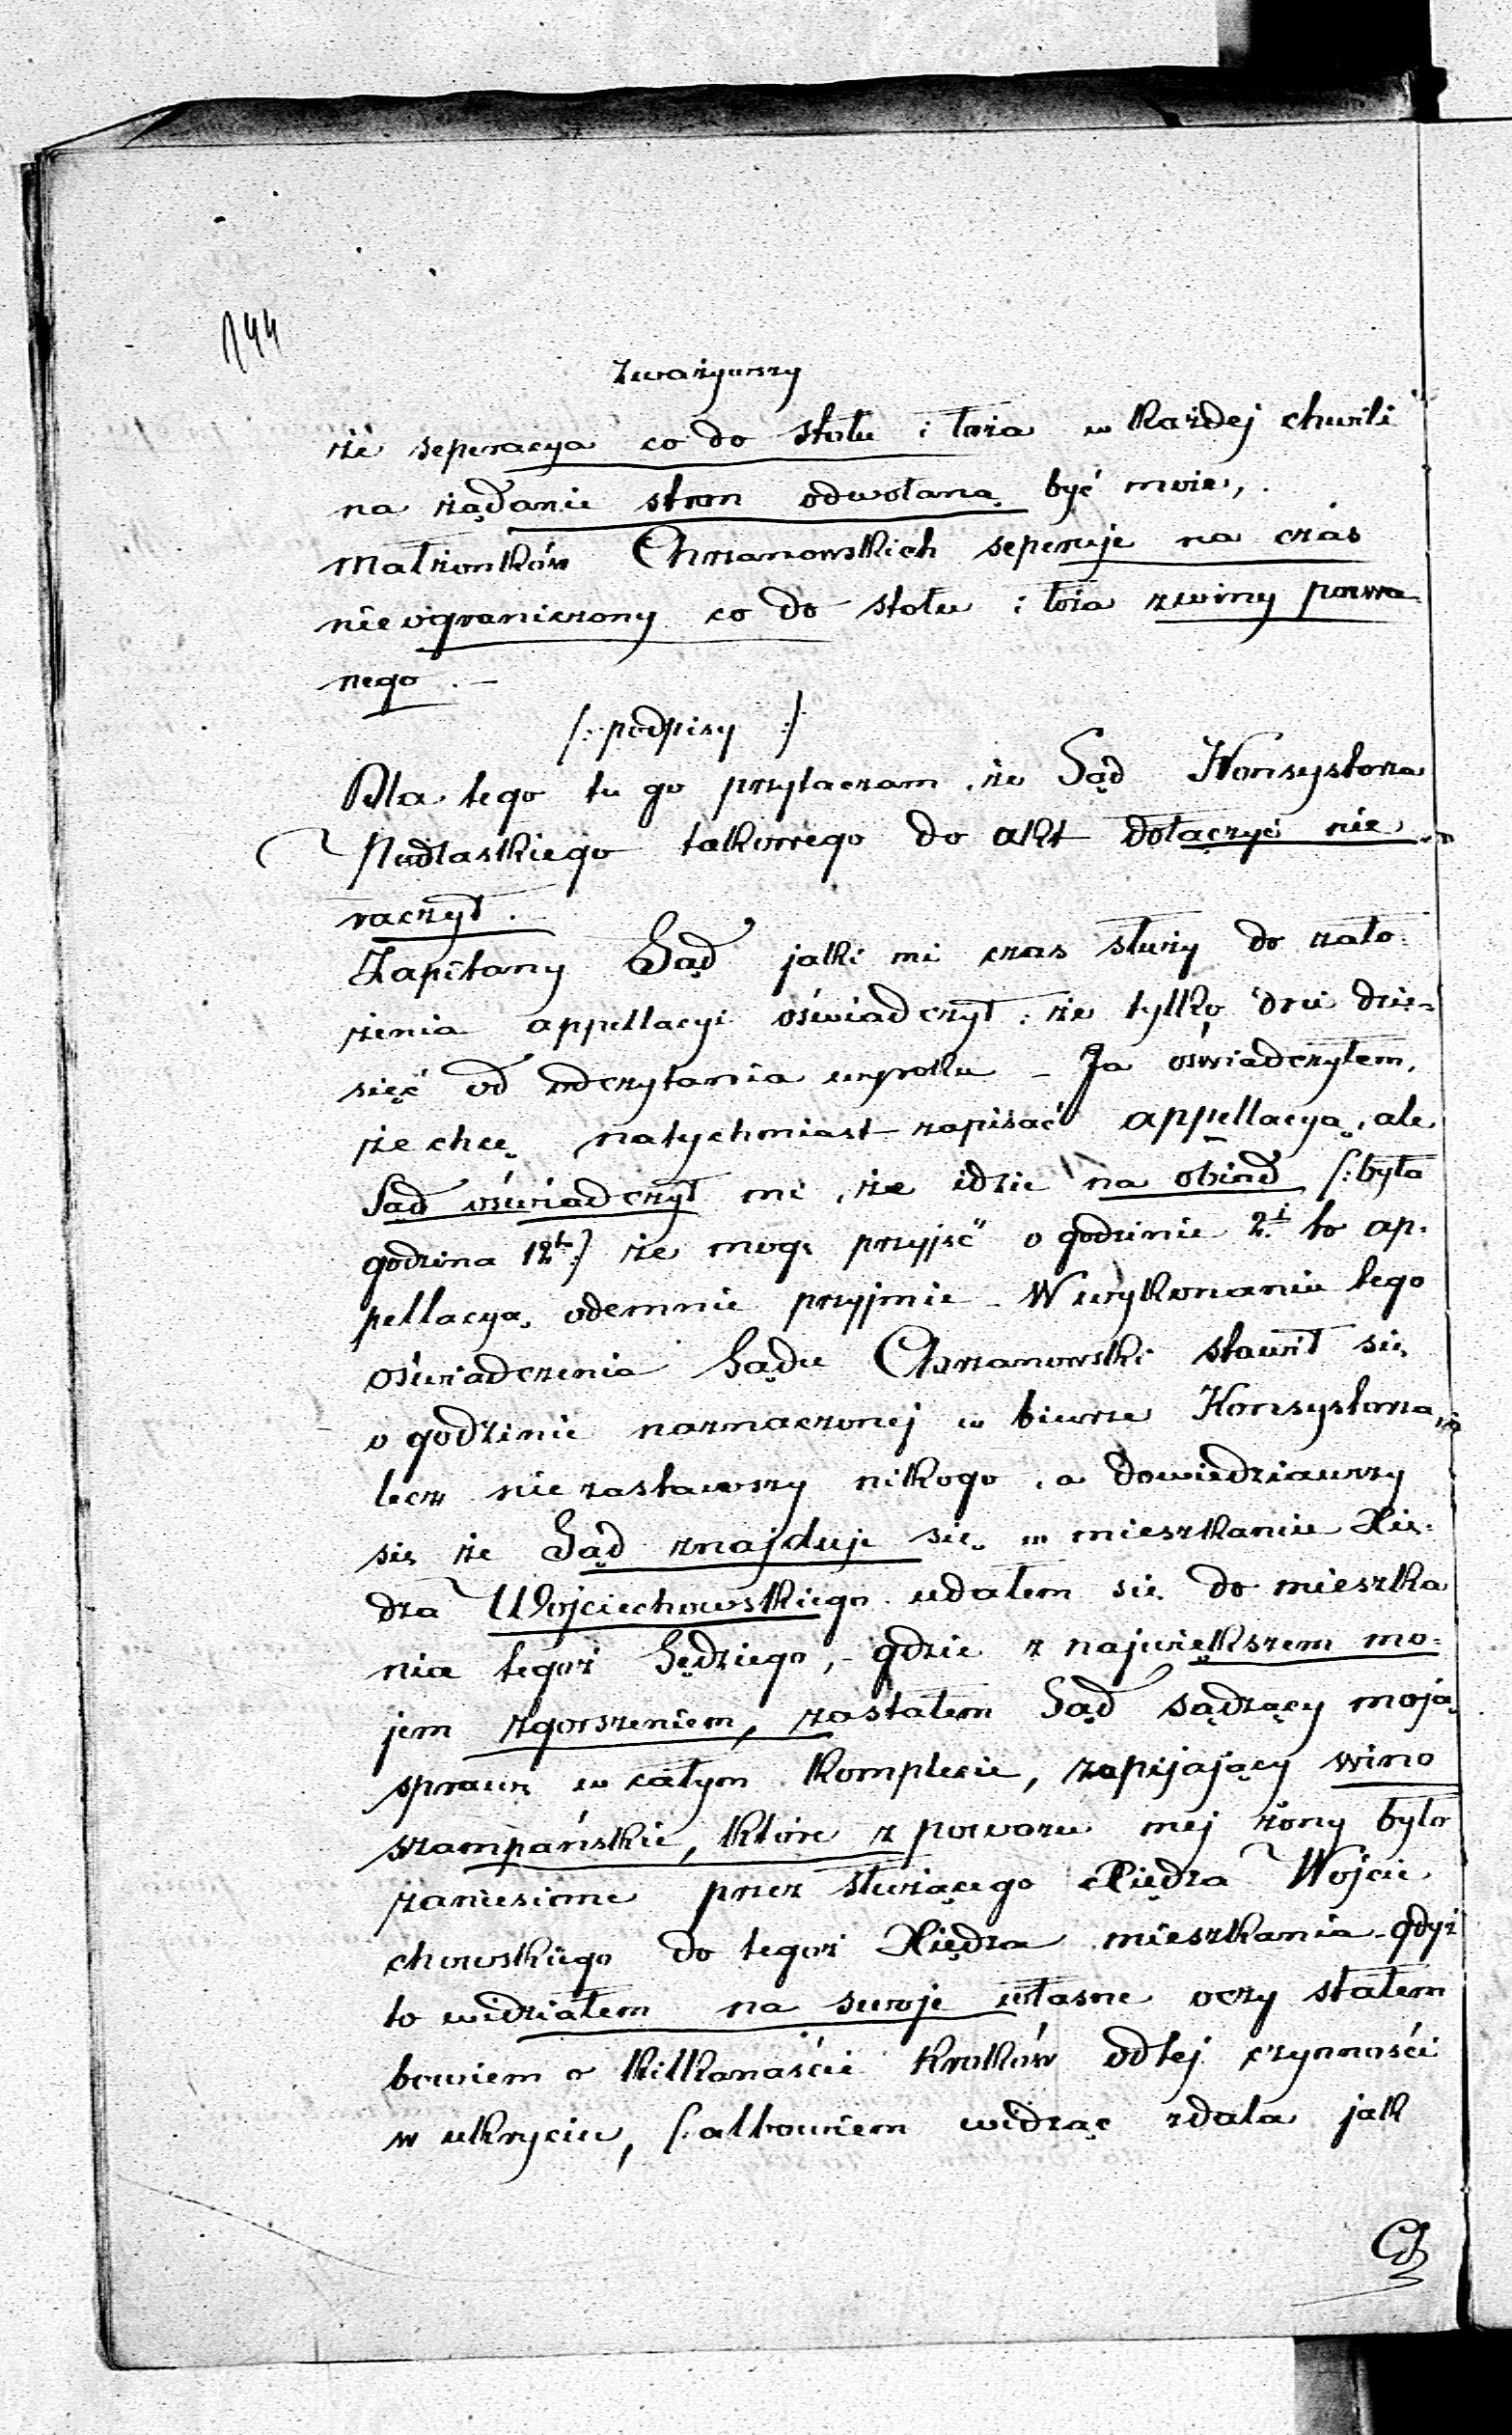 144
Zważywszy
że seperacya co do stołu i łoża w każdej chwili
na żądanie stron odwołaną być może,
Małżonków Chrzanowskich seperuje na czas
nieograniczony co do stołu i łoża zwiny pozwa-
nego. —
/: podpisy :/
Dla tego tu go przytaczam, że Sąd Konsystorza
Podlaskiego takowego do akt dołączyć nie
raczył.
Zapitany Sąd jaki mi czas służy do zało-
żenia appellacyi oświadczył: że tylko dni dzie-
sięć od odczytania wyroku – Ja oświadczyłem,
że chcę natychmiast zapisać appellacyą, ale
Sąd oświadczył mi, że idzie na obiad /: była
godzina 12ta :/ że mogę przyjść o godzinie 2i to ap-
pellacyą odemnie przyjmie – W wykonaniu tego
oświadczenia Sądu Chrzanowski stawił się
o godzinie naznaczonej w biurze Konsystorza,
lecz nie zastawszy nikogo, a dowiedziawszy
się że Sąd znajduje się w mieszkaniu Xię-
dza Wojciechowskiego udałem się do mieszka
nia tegoż Sędziego, – gdzie z największem mo-
jem zgorszeniem, zastałem Sąd sądzący moją
sprawę w całym komplecie, zapijający wino
szampańskie, które z powozu mej żony było
zaniesione przez służącego Xiędza Wojcie
chowskiego do tegoż Xiędza mieszkania – gdyż
to widziałem na swoje własne oczy stałem
bowiem o kilkanaście kroków odtej czynności
w ukryciu, /: albowiem widząc zdala jak